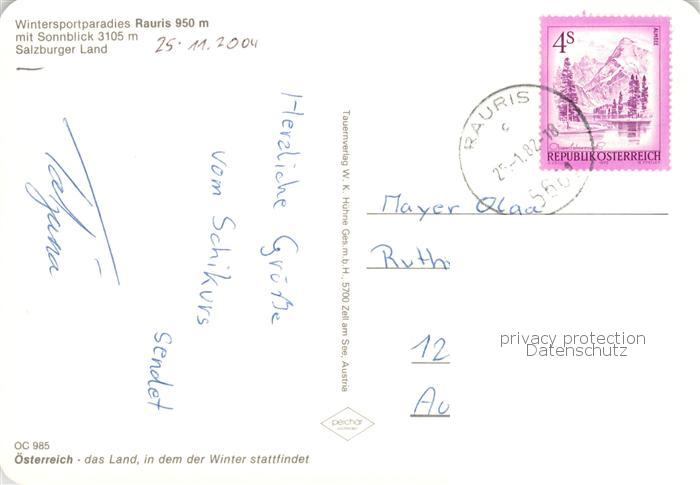 Wintersportparadies Rauris 950 m
mit Sonnblick 3105 m
Salzburger Land
25. 11. 2004
4s
ALMSEE
REPUBLIK ÖSTERREICH
RAURIS
c
25.-1.82-18
Herzliche Größe
vom Schikurs
sendet
Tauernverlag W. K. Hühne Ges. m. b. H., 5700 Zell am See, Austria
Mayer
Ruth
12
Au
privacy protection
Datenschutz
OC 985
Österreich - das Land, in dem der Winter stattfindet